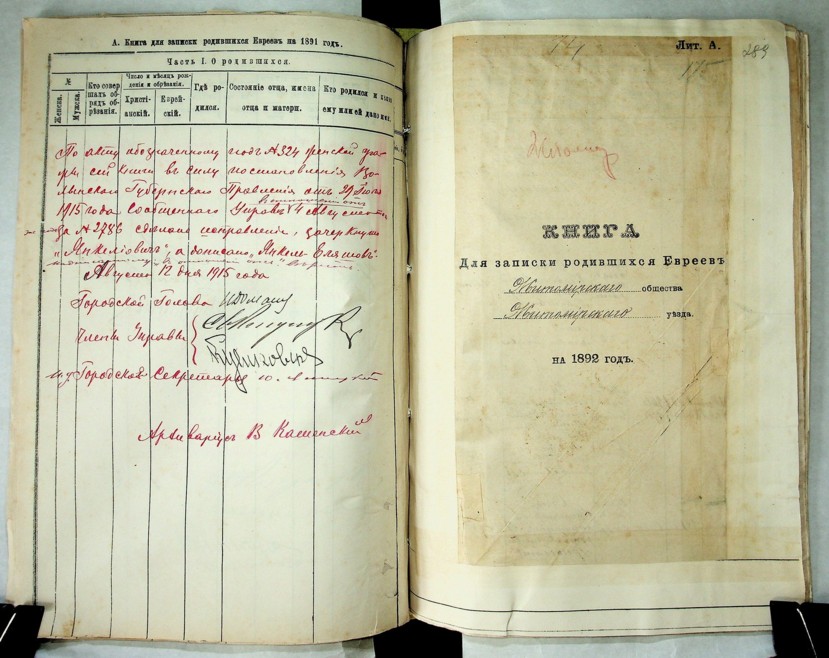 А. Книга для записки родившихся Евреевъ на 1891 годъ.
Часть I. О родившихся.
№
Женска.
Мужска.
Кто совер
шалъ об-
рядъ об-
рѣзанія.
Число и мѣсяцъ рож-
денія и обрѣзанія.
Христі-
анскій.
Еврей-
скій.
Гдѣ ро-
дился.
Состояніе отца, имена
отца и матери.
Кто родился и
ему или ей дано имя.
По акту обозначенному подъ №324 женской
сей книги въ силу постановленія Во-
лынскаго Губернскаго Правленія отъ 29 Іюля
1915 года сообщеннаго Управѣ 4 Августа
за № 2786 сдѣлано исправленіе, зачеркнуто
"Янкеліовичъ", а дописано "Янкель Еляшовъ".
Августа 12 дня 1915 года
Городской Голова
Члены Управы
И.д. Городской Секретарь
Архиваріусъ В Каменскій
Лит. А.
289
175
Житомир
КНИГА
Для записки родившихся Евреевъ
Житомірскаго общества
Житомірскаго уѣзда.
на 1892 годъ.